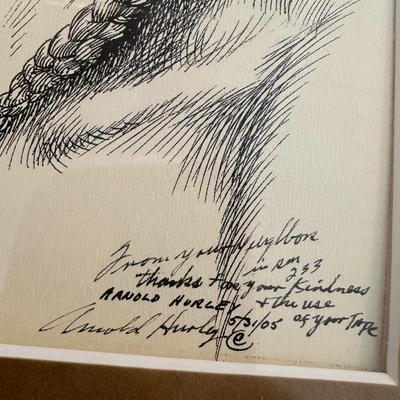 From your Neighbor
in rm
233
thanks for your Kindness
ARNOLD HURLEY & the use
Arnold Hurley 5/31/05 of your Tape
©